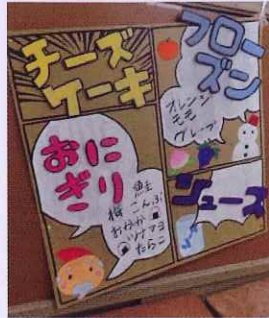 チーズ
ケーキ
フロー
ズン
オレンジ
モモ
グレープ
おに
ぎり
鮭
梅 こんぶ
おかか
ツナマヨ
たらこ
ジュース